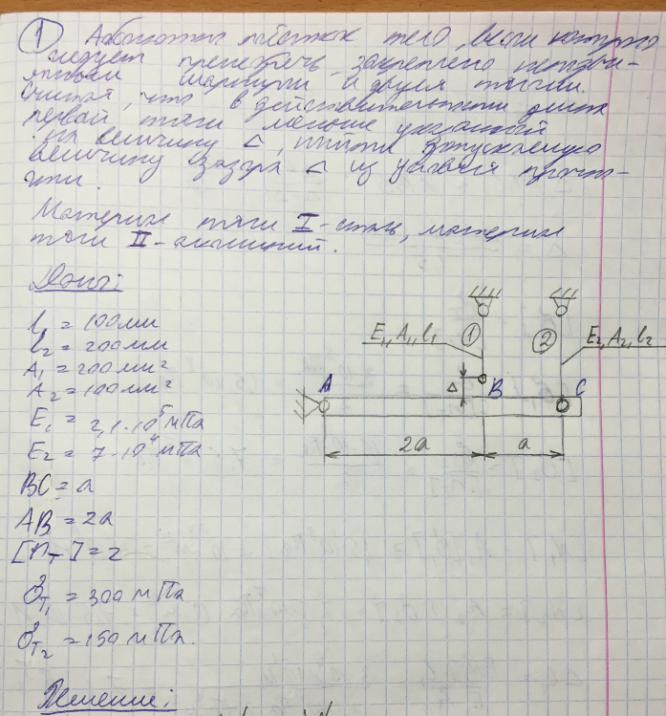 ① Абсолютно жёсткое тело, весом которого
следует пренебречь, закреплено неподви-
жным шарниром и двумя тягами.
Считая, что в действительности длина
первой тяги меньше указанной
на величину Δ, найти допускаемую
величину зазора Δ из условия прочно-
сти.
Материал тяги I-сталь, материал
тяги II-алюминий.
Дано:
l₁ = 100мм
l₂ = 200мм
A₁ = 200мм²
A₂ = 100мм²
E₁ = 2,1·10⁵мПа
E₂ = 7·10⁴мПа
BC = a
AB = 2a
[nT] = 2
σT₁ = 300мПа
σT₂ = 150мПа.
Решение:
E₁, A₁, l₁
①
②
E₂, A₂, l₂
A
Δ
B
C
2a
a